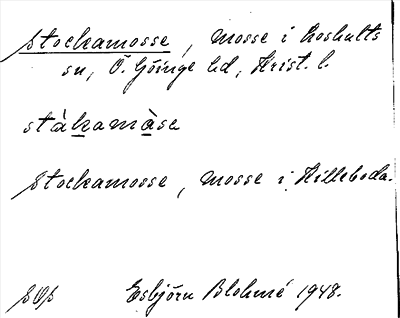 Stockamosse, mosse i Loshults
sn, Ö. Göinge hd, Krist. l.
stàkamàse
Stockamosse, mosse i Hilleboda.
Esbjörn Blohmé 1948.